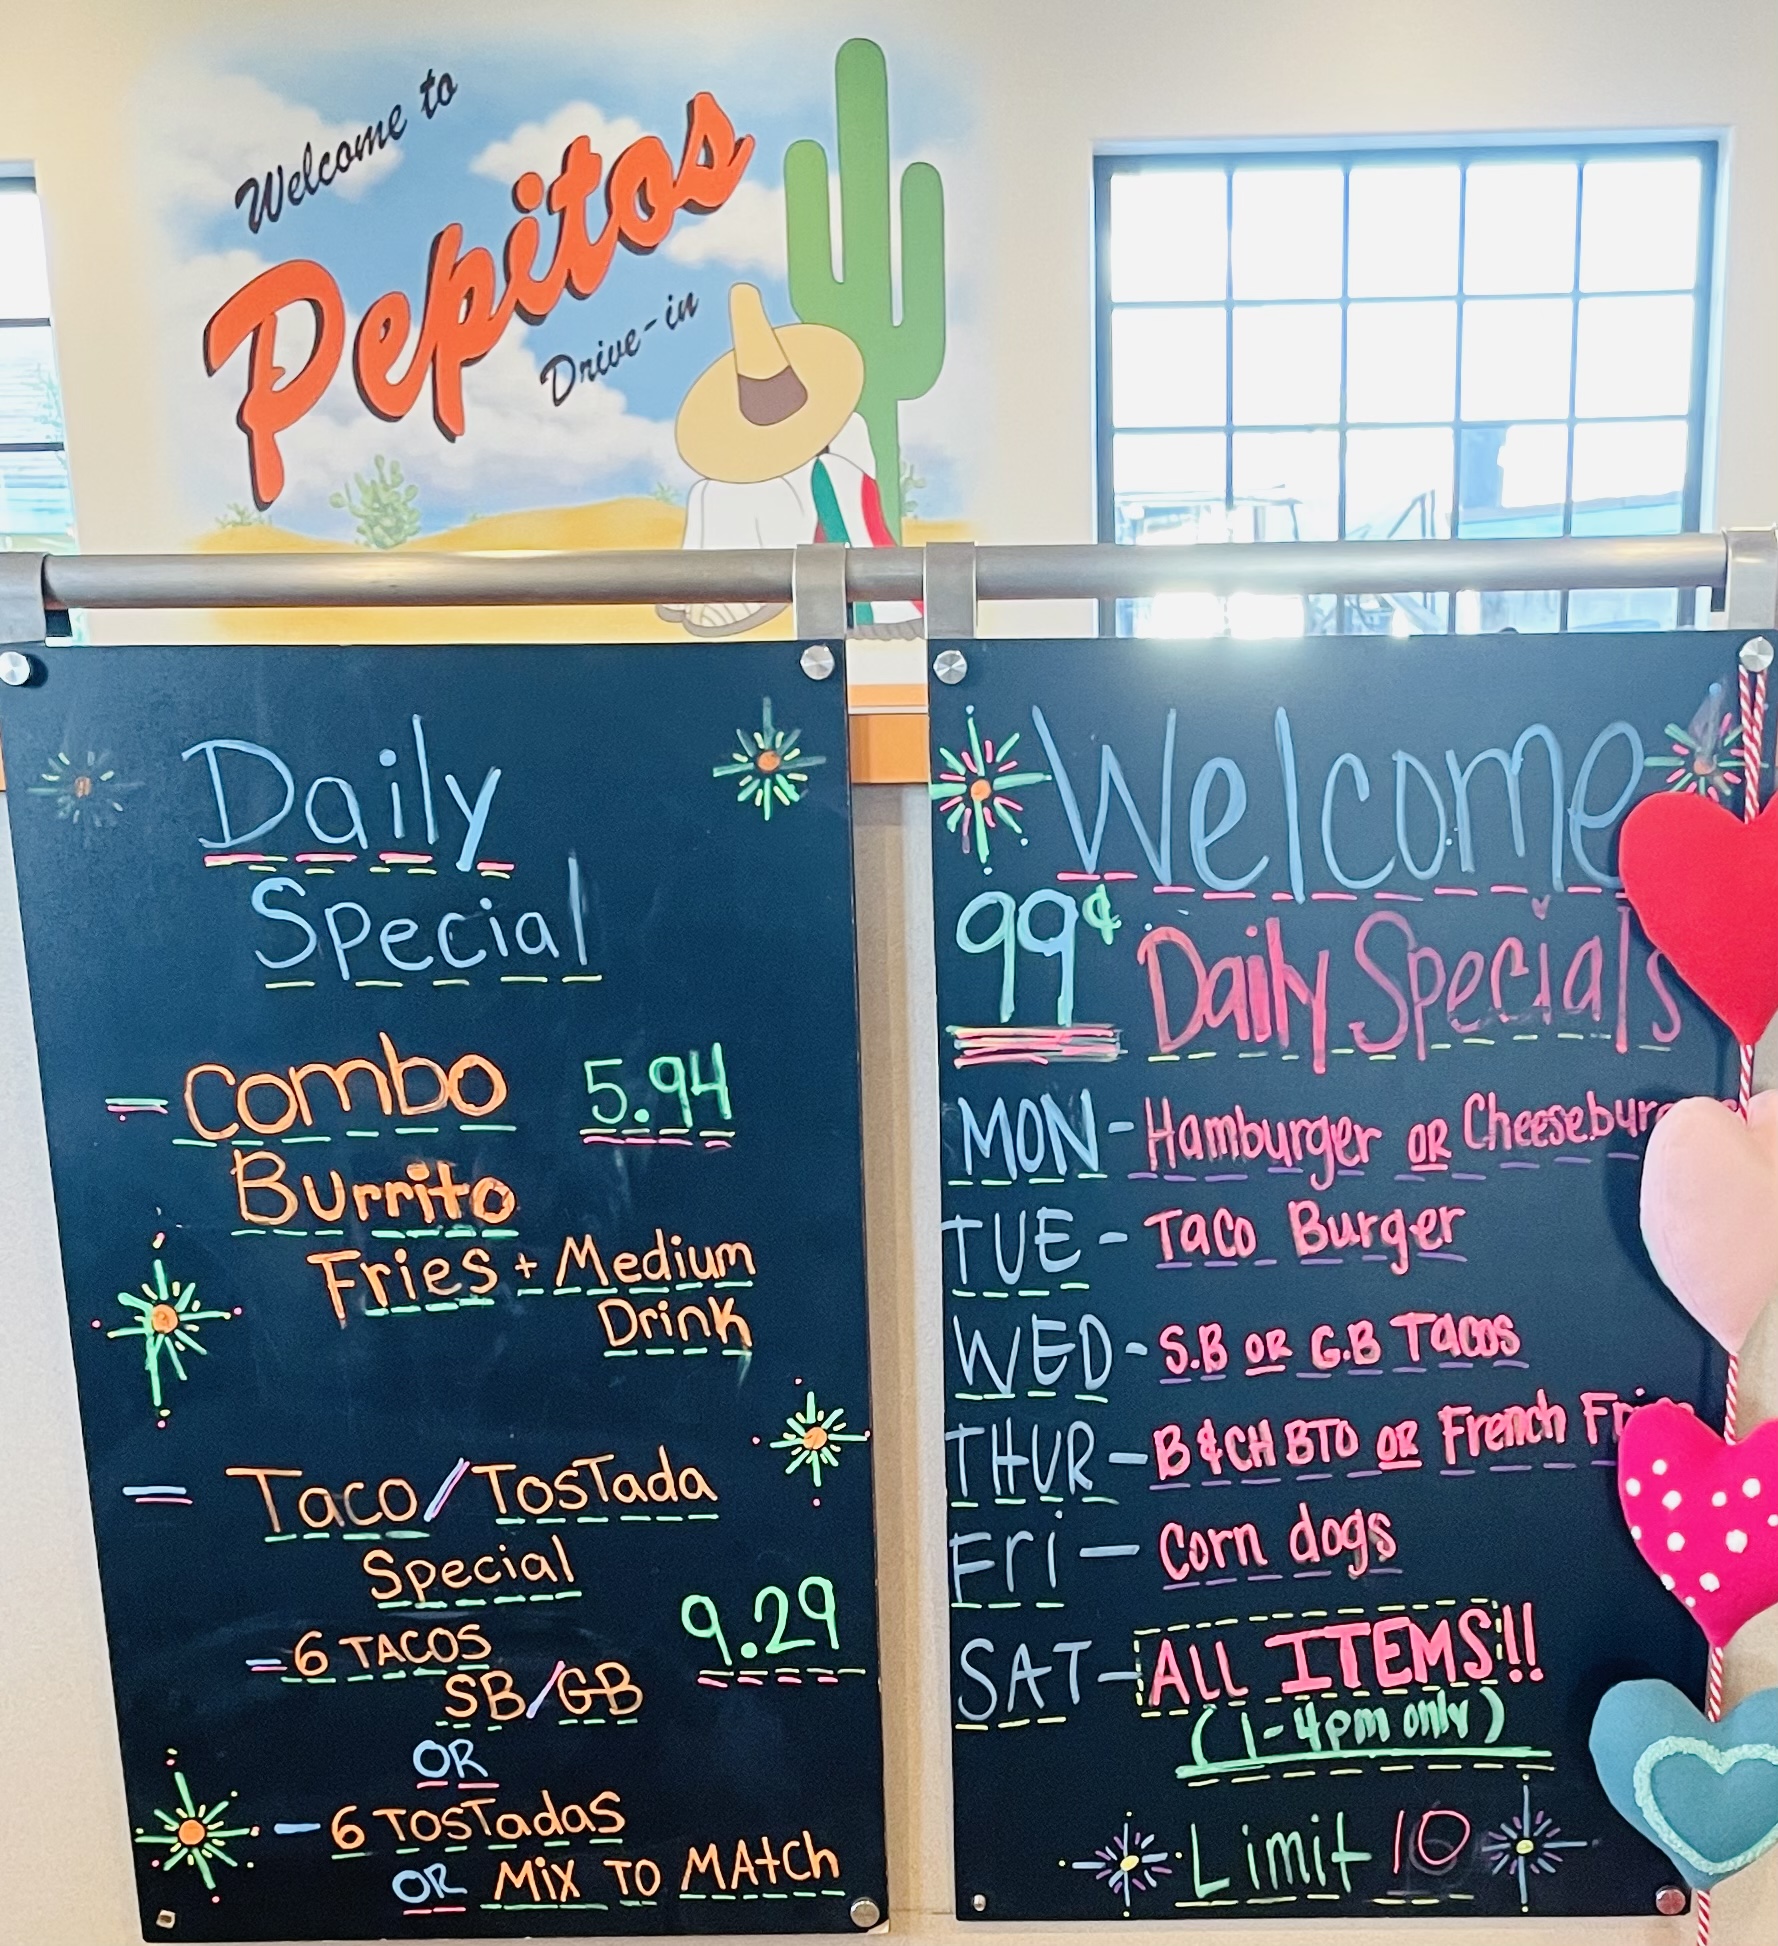 Welcome to
Pepitos
Drive-in
Daily
Special
- Combo 5.94
Burrito
Fries + Medium
Drink
- Taco/Tostada
Special
- 6 TACOS 9.29
SB/GB
OR
- 6 TosTadas
OR Mix TO MAtCh
Welcome
99¢ Daily Specials
MON - Hamburger OR
TUE - Taco Burger
WED - S.B OR G.B Tacos
THUR - B & CH BTO OR French
Fri - Corn dogs
SAT - ALL ITEMS!!
(1-4pm only)
Limit 10